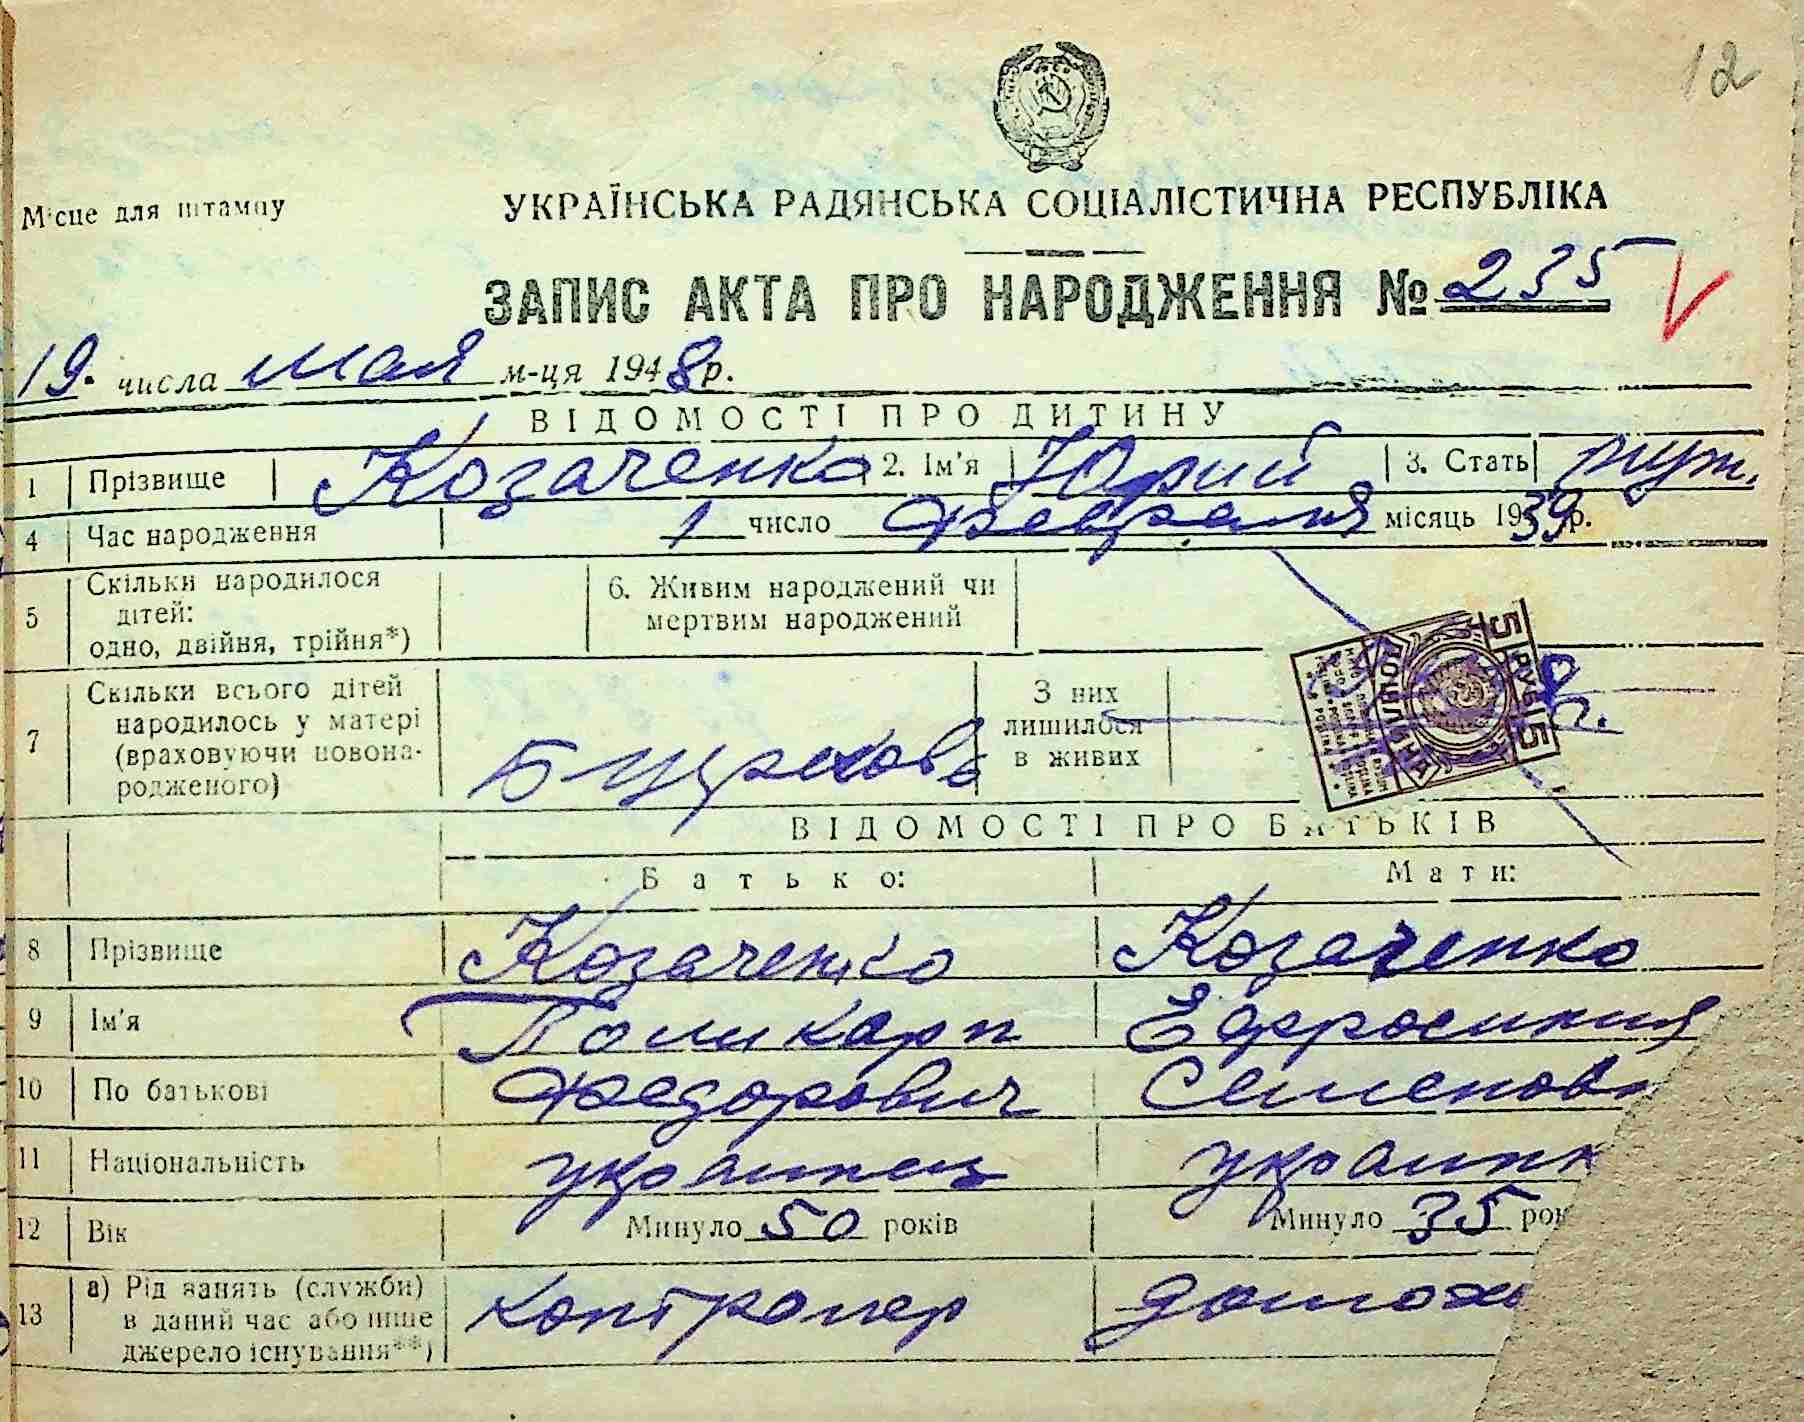 12
Місце для штампу
УКРАЇНСЬКА РАДЯНСЬКА СОЦІАЛІСТИЧНА РЕСПУБЛІКА
ЗАПИС АКТА ПРО НАРОДЖЕННЯ № 235
19. числа мая м-ця 1948 р.
ВІДОМОСТІ ПРО ДИТИНУ
1 Прізвище Козаченко 2. Ім'я Юрий 3. Стать муж.
4 Час народження 1 число февраля місяць 1939 р.
5 Скільки народилося дітей: одно, двійня, трійня*) 6. Живим народжений чи мертвим народжений
7 Скільки всього дітей народилось у матері (враховуючи новона-родженого) З них лишилося в живих
5 РУБ 5
ПОШЛИНА
ВІДОМОСТІ ПРО БАТЬКІВ
Батько: Мати:
8 Прізвище Козаченко Козаченко
9 Ім'я Поликарп Ефросиния
10 По батькові Федорович Семеновн
11 Національність украинец украинк
12 Вік Минуло 50 років Минуло 35 рок
13 а) Рід занять (служби) в даний час або інше джерело існування**) контролер домохо